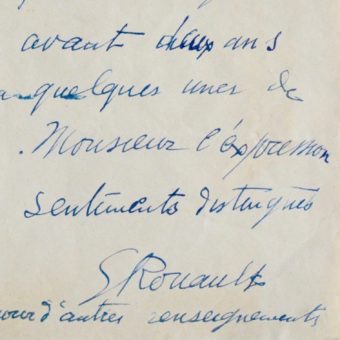 avant deux ans
quelques unes de
Monsieur l'expression
sentiments distingués
GRouault
pour d'autres renseignements